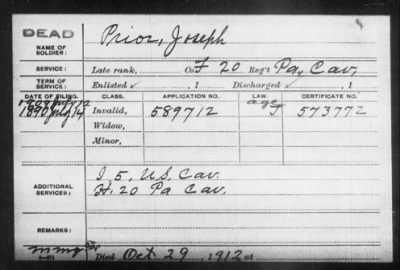 DEAD
NAME OF SOLDIER: Prior, Joseph
SERVICE: Late rank, Co. F 20 Reg't Pa. Cav.
TERM OF SERVICE: Enlisted , 1 Discharged , 1
DATE OF FILING. CLASS. APPLICATION NO. LAW. CERTIFICATE NO.
1890 July 14 Invalid, 589712 573772
Widow,
Minor,
ADDITIONAL SERVICES: I 5, U.S. Cav.
H. 20 Pa Cav.
REMARKS:
Died Oct 29, 1912 at